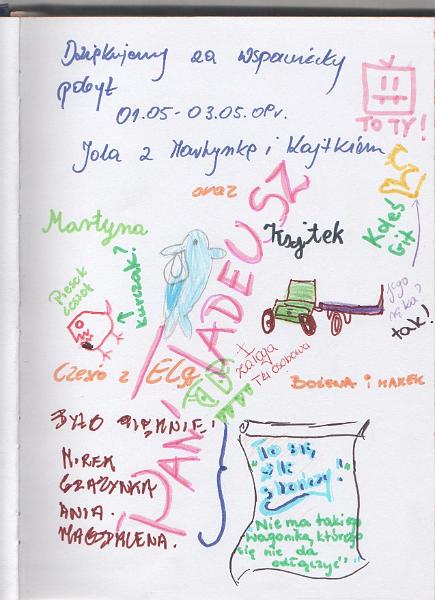 Dziękujemy za wspaniały
pobyt
01.05 - 03.05.08r.
Jola z Martynką i Kajtkiem
TO TY!
oraz
Martyna
Kajtek
Koleś
Git
Piesek
Kurczak?
Jego
ręka?
tak!
PAN TADEUSZ
Czesio z Elą
+
załoga
osobowa
BOŻENA I MAREK
BYŁO PIĘKNIE!
MIREK
GRAŻYNKA
ANIA
MAGDALENA.
"To się
źle
skończy!"
"Nie ma takiego
wagonika, którego
się nie da
odłączyć"